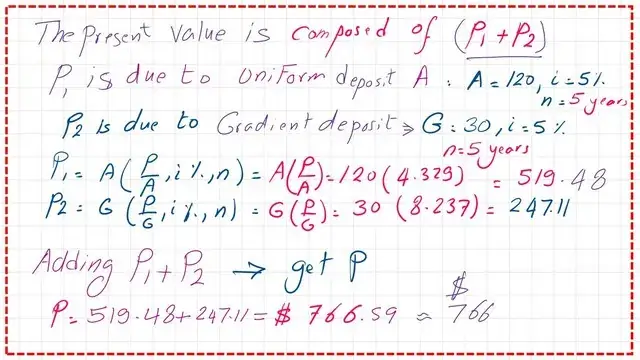 The present value is composed of (P1 + P2)
P1 is due to Uniform deposit A : A = 120, i = 5%
n = 5 years
P2 is due to Gradient deposit ⇒ G = 30, i = 5%
n = 5 years
P1 = A (P/A, i%, n) = A(P/A) = 120 (4.329) = 519.48
P2 = G (P/G, i%, n) = G(P/G) = 30 (8.237) = 247.11
Adding P1 + P2 → get P
P = 519.48 + 247.11 = $ 766.59 ≈ $ 766